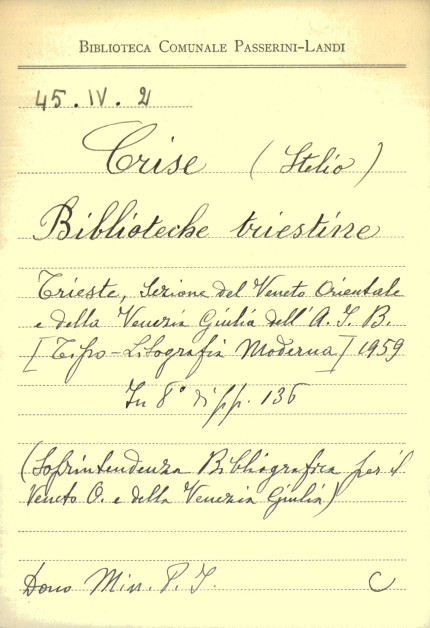 BIBLIOTECA COMUNALE PASSERINI-LANDI
45. IV. 2
Crise (Stelio)
Biblioteche triestine
Trieste, Sezione del Veneto Orientale
e della Venezia Giulia dell'A. I. B.
[Tipo-Litografia Moderna] 1959
In 8° di pp. 136
(Soprintendenza Bibliografica per il
Veneto O. e della Venezia Giulia)
Dono Min. P. I. C